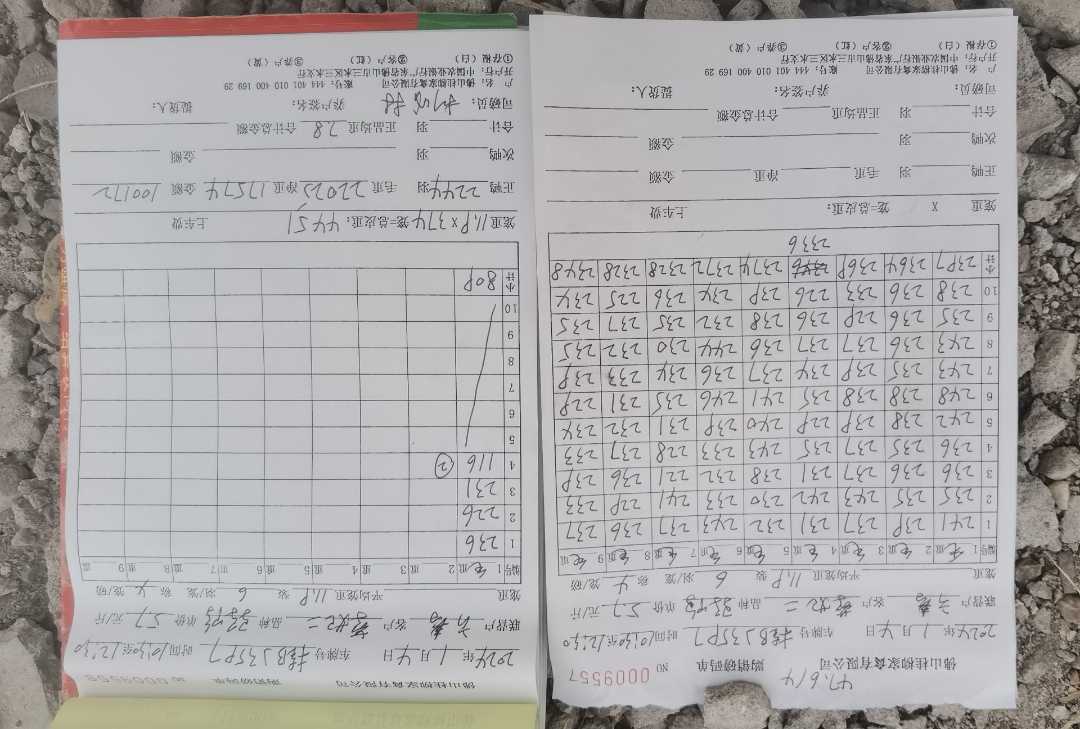 47.6/4
佛山桂柳家禽有限公司 购销磅码单 NO 0009557
2024年 1 月 4 日 车牌号 桂B J3597 时间 10:30至12:30
联营户 客户 品种 单价 5.7 元/斤
笼重 平均笼重 11.9 装 6 羽/笼 称 4 笼/磅
编号 1 毛重 2 毛重 3 毛重 4 毛重 5 毛重 6 毛重 7 毛重 8 毛重 9 毛重
1 241 239 237 231 232 243 237 236 237
2 235 235 243 242 230 233 241 229 233
3 236 236 237 231 238 232 221 236 239
4 236 235 237 235 243 233 228 237 233
5 242 238 239 229 240 239 231 232 234
6 248 238 238 235 241 246 235 231 229
7 243 235 239 234 237 236 234 233 239
8 243 236 237 237 236 244 230 232 235
9 235 236 229 236 238 232 235 237 235
10 238 236 233 226 239 234 236 225 234
小计 2397 2364 2369 2374 2372 2328 2328 2348
2336
笼重 X 笼=总皮重: 上车费
正鸭 羽 毛重 净重 金额
次鸭 羽 金额
合计 羽 正品均重 合计总金额
司磅员: 养户签名: 提货人:
户 名: 佛山桂柳家禽有限公司 账号: 444 401 010 400 169 29
开户行: 中国农业银行广东省佛山市三水区三水支行
①存根(白) ②客户(红) ③养户(黄)
佛山桂柳家禽有限公司 购销磅码单 NO 0009558
2024年 1 月 4 日 车牌号 桂B J3597 时间 10:30至12:30
联营户 客户 品种 单价 5.7 元/斤
笼重 平均笼重 11.9 装 6 羽/笼 称 4 笼/磅
编号 1 毛重 2 重 3 重 4 重 5 重 6 重 7 重 8 重 9 重
1 236
2 226
3 231
4 116 ②
5
6
7
8
9
10
小计 809
笼重 11.9 X 374 笼=总皮重: 4451 上车费
正鸭 2244 羽 毛重 22025 净重 17574 金额 100172
次鸭 羽 金额
合计 羽 正品均重 7.8 合计总金额
司磅员: 养户签名: 提货人:
户 名: 佛山桂柳家禽有限公司 账号: 444 401 010 400 169 29
开户行: 中国农业银行广东省佛山市三水区三水支行
①存根(白) ②客户(红) ③养户(黄)